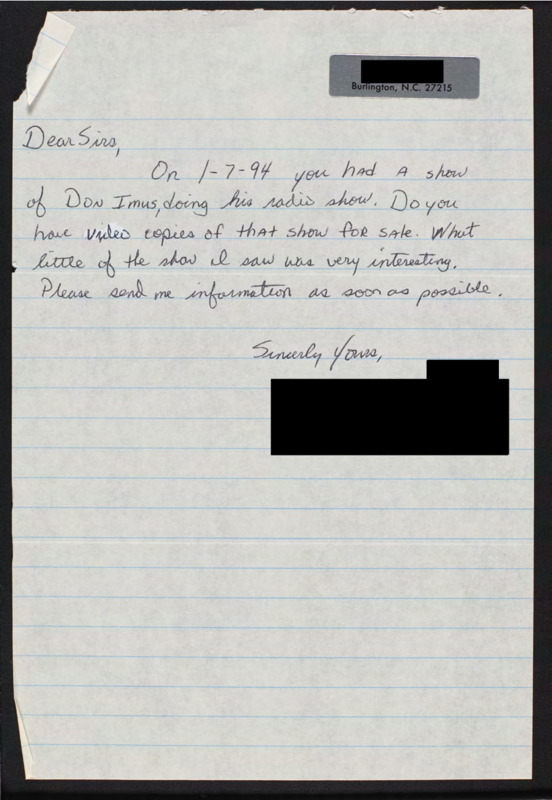 Burlington, N.C. 27215
Dear Sirs,
On 1-7-94 you had a show
of Don Imus, doing his radio show. Do you
have video copies of that show for sale. What
little of the show I saw was very interesting.
Please send me information as soon as possible.
Sincerly Yours,